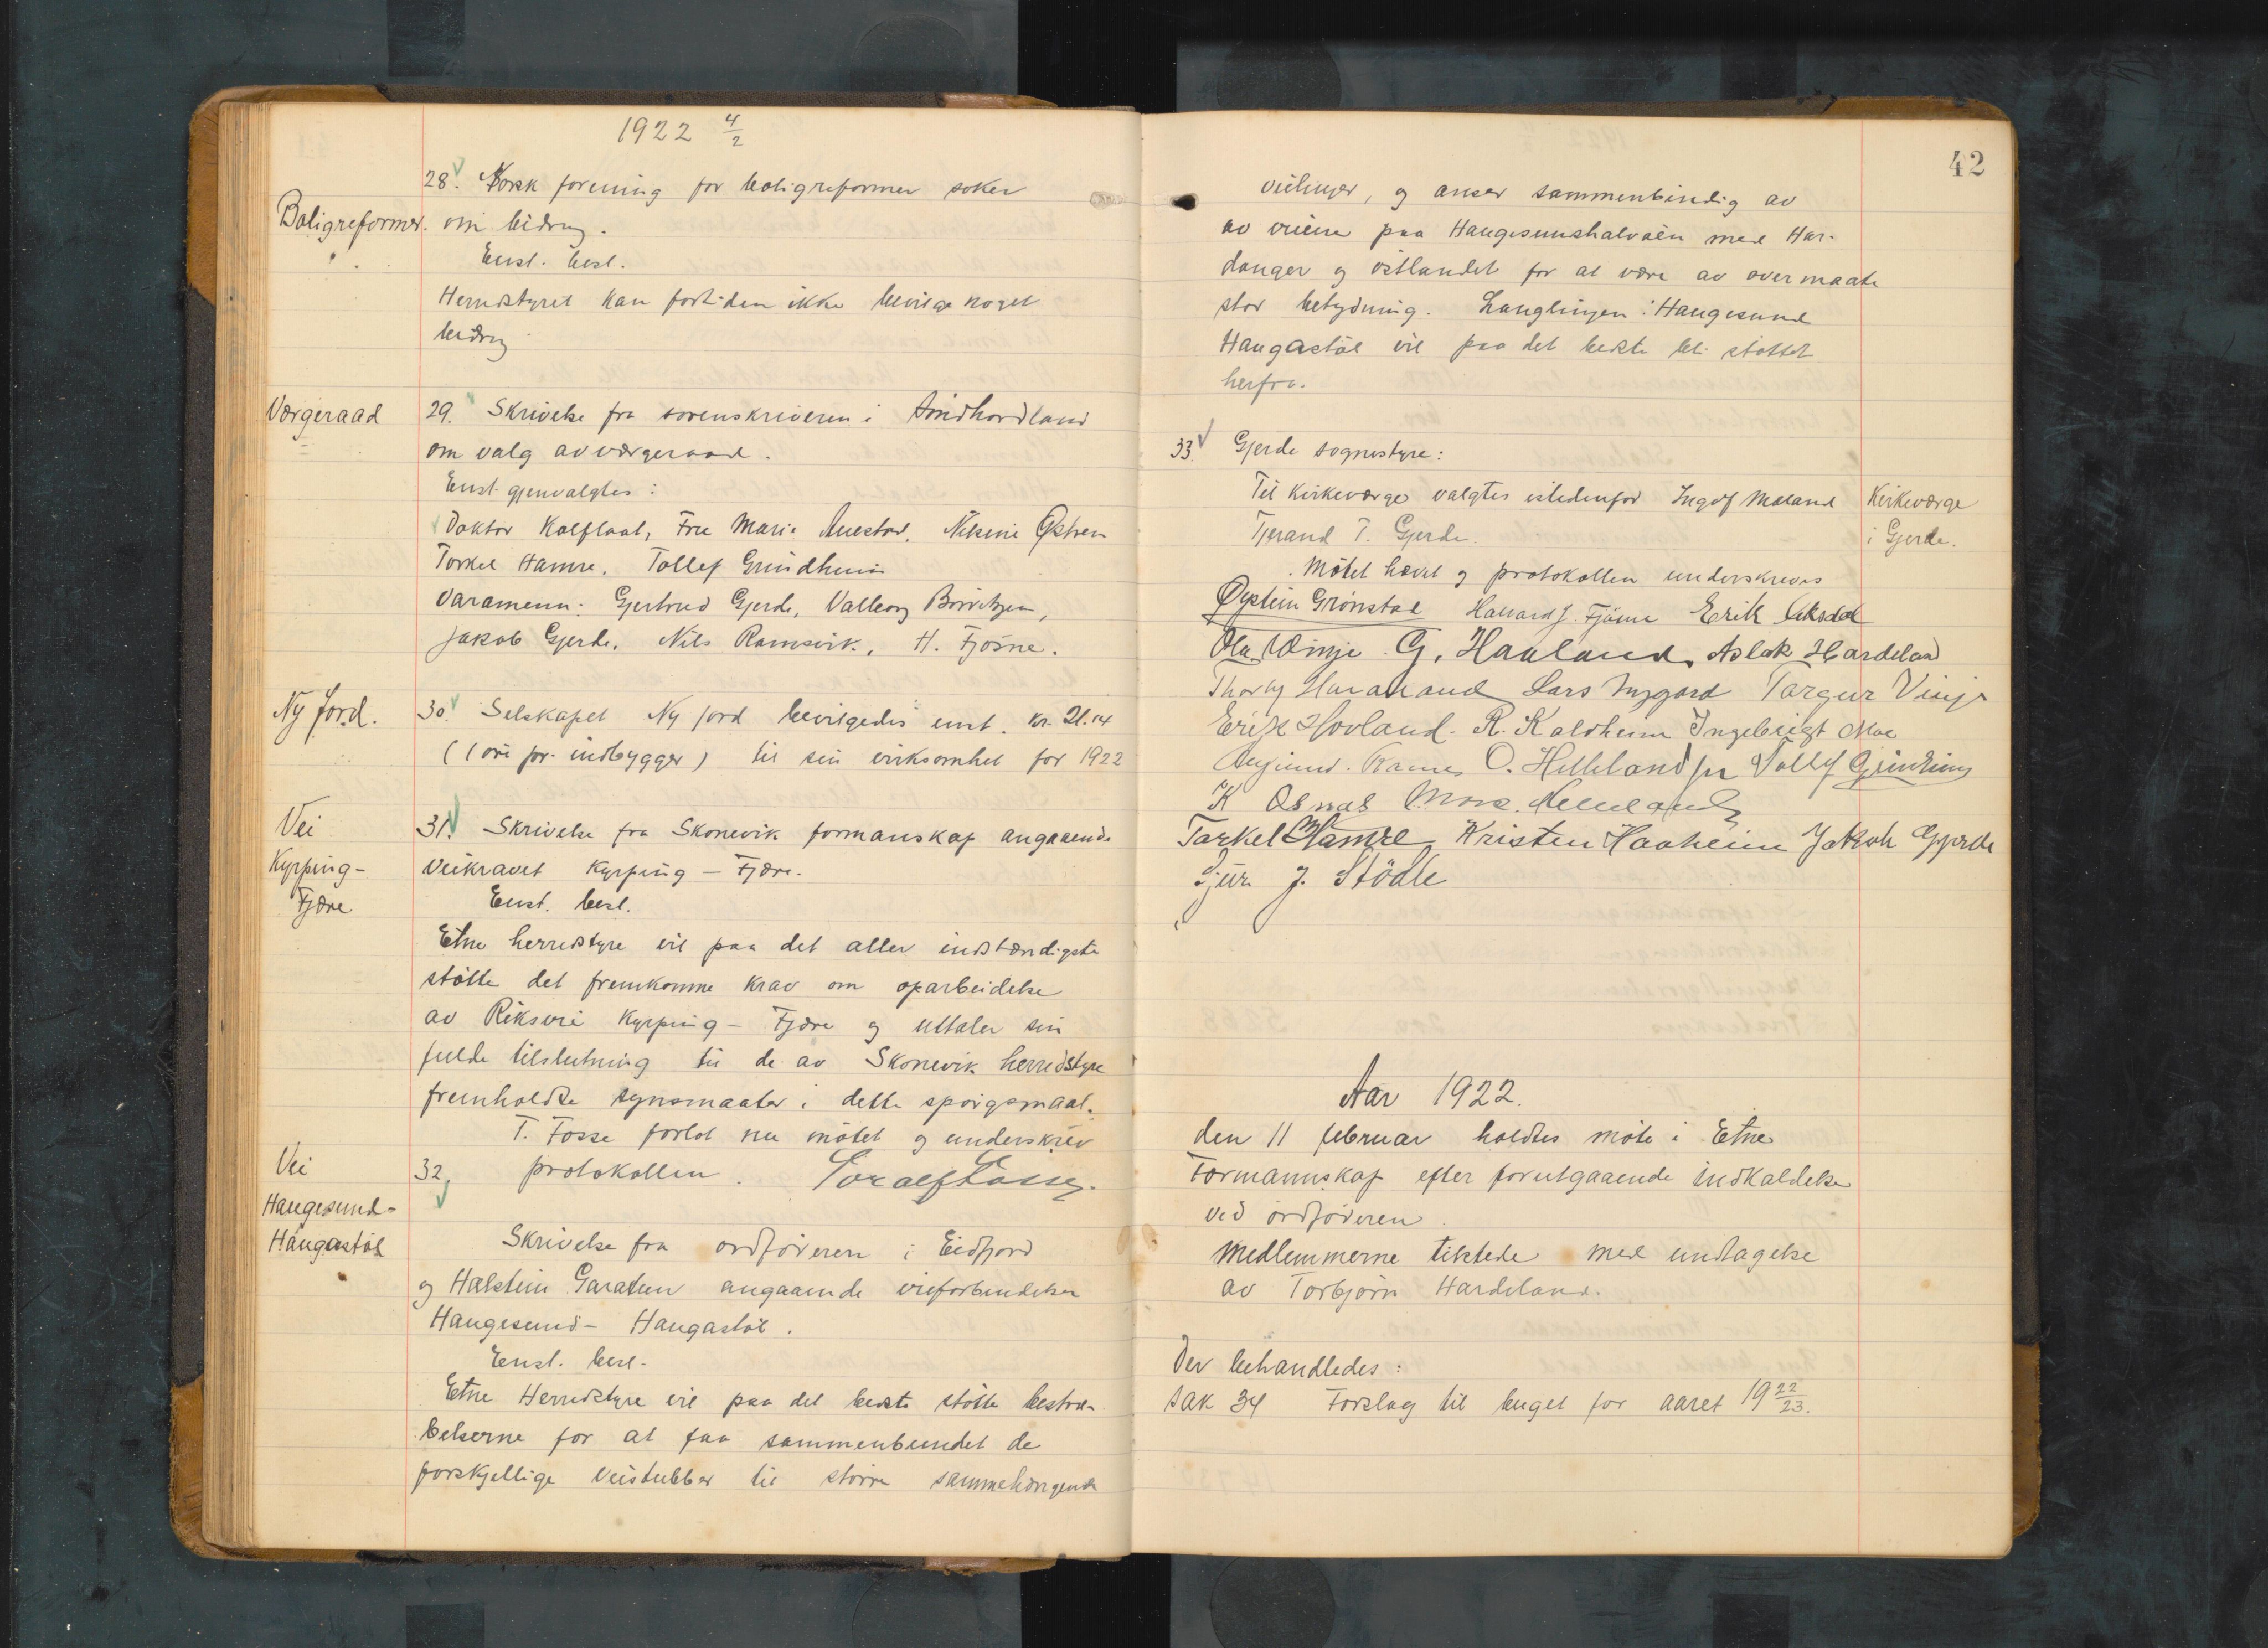 1922 4/2
28. Norsk forening for boligreformer søker
Boligreformer. om bidrag.
Enst. besl.
Herredstyret kan fortiden ikke bevilge noget
bidrag
Værgeraad 29. Skrivelse fra sorenskriveren i Søndhordland
om valg av værgeraad.
Enst. gjenvalgtes:
Doktor Kolflaat, Fru Maria Anestad, Nilsine Østrem
Torkel Hamre, Tollef Grindheim
Varamenn: Gjertrud Gjerde, Valborg
Jakob Gjerde, Nils Ramsvik, H. Fjøsne.
Ny Jord. 30. Selskapet Ny Jord bevilgedes enst. kr. 21.14
(1 øre pr. indbygger) til sin virksomhet for 1922
Vei 31. Skrivelse fra Skonevik formanskap angaaende
Kyrping- veikravet Kyrping - Fjære.
Fjære Enst. besl.
Etne herredstyre vil paa det aller indstændigste
støtte det fremkomne krav om oparbeidelse
av Riksvei Kyrping - Fjære og uttaler sin
fulde tilslutning til de av Skonevik herredstyre
fremholdte synsmaater i dette spørgsmaal.
T. Fosse forlot nu møtet og underskrev
Vei 32. protokollen. Toralf Fosse.
Haugesund-
Haugastøl Skrivelse fra ordføreren i Eidfjord
og Halstein Garatun angaaende veiforbindelsen
Haugesund - Haugastøl.
Enst. besl.
Etne Herredstyre vil paa det beste støtte bestræ-
belserne for at faa sammenbundet de
forskjellige veistubber til større sammehængende
42
veilinjer, og anser sammenbindig av
av veiene paa Haugesunshalvøen med Har-
danger og østlandet for at være av overmaate
stor betydning. Langlinjen: Haugesund
Haugastøl vil paa det beste bli støttet
herfra.
33. Gjerde sognestyre:
Til Kirkeværge valgtes istedenfor Ingolf Mæland Kirkeværge
Tjerand T. Gjerde. i Gjerde.
Møtet hævet og protokollen underskreves
Øystein Grønstad Halvard J. Fjøsne Erik Aksdal
Ola Vinje G. Haaland Aslak Hardeland
Lars Nygard Torgeir Vinje
Erik Hovland. R. Kaldheim Ingebrigt Moe
O. Helleland jr Tollef Grindheim
K Osnes
Torkel Hamre Kristen Haaheim Jakob Gjerde
Sjur J. Stødle
Aar 1922.
den 11 februar holdtes møte i Etne
Formannskap efter forutgaaende indkaldelse
ved ordføreren.
Medlemmerne tilstede med undtagelse
av Torbjørn Hardeland.
Der behandledes:
Sak 34 Forslag til buget for aaret 19 22/23.